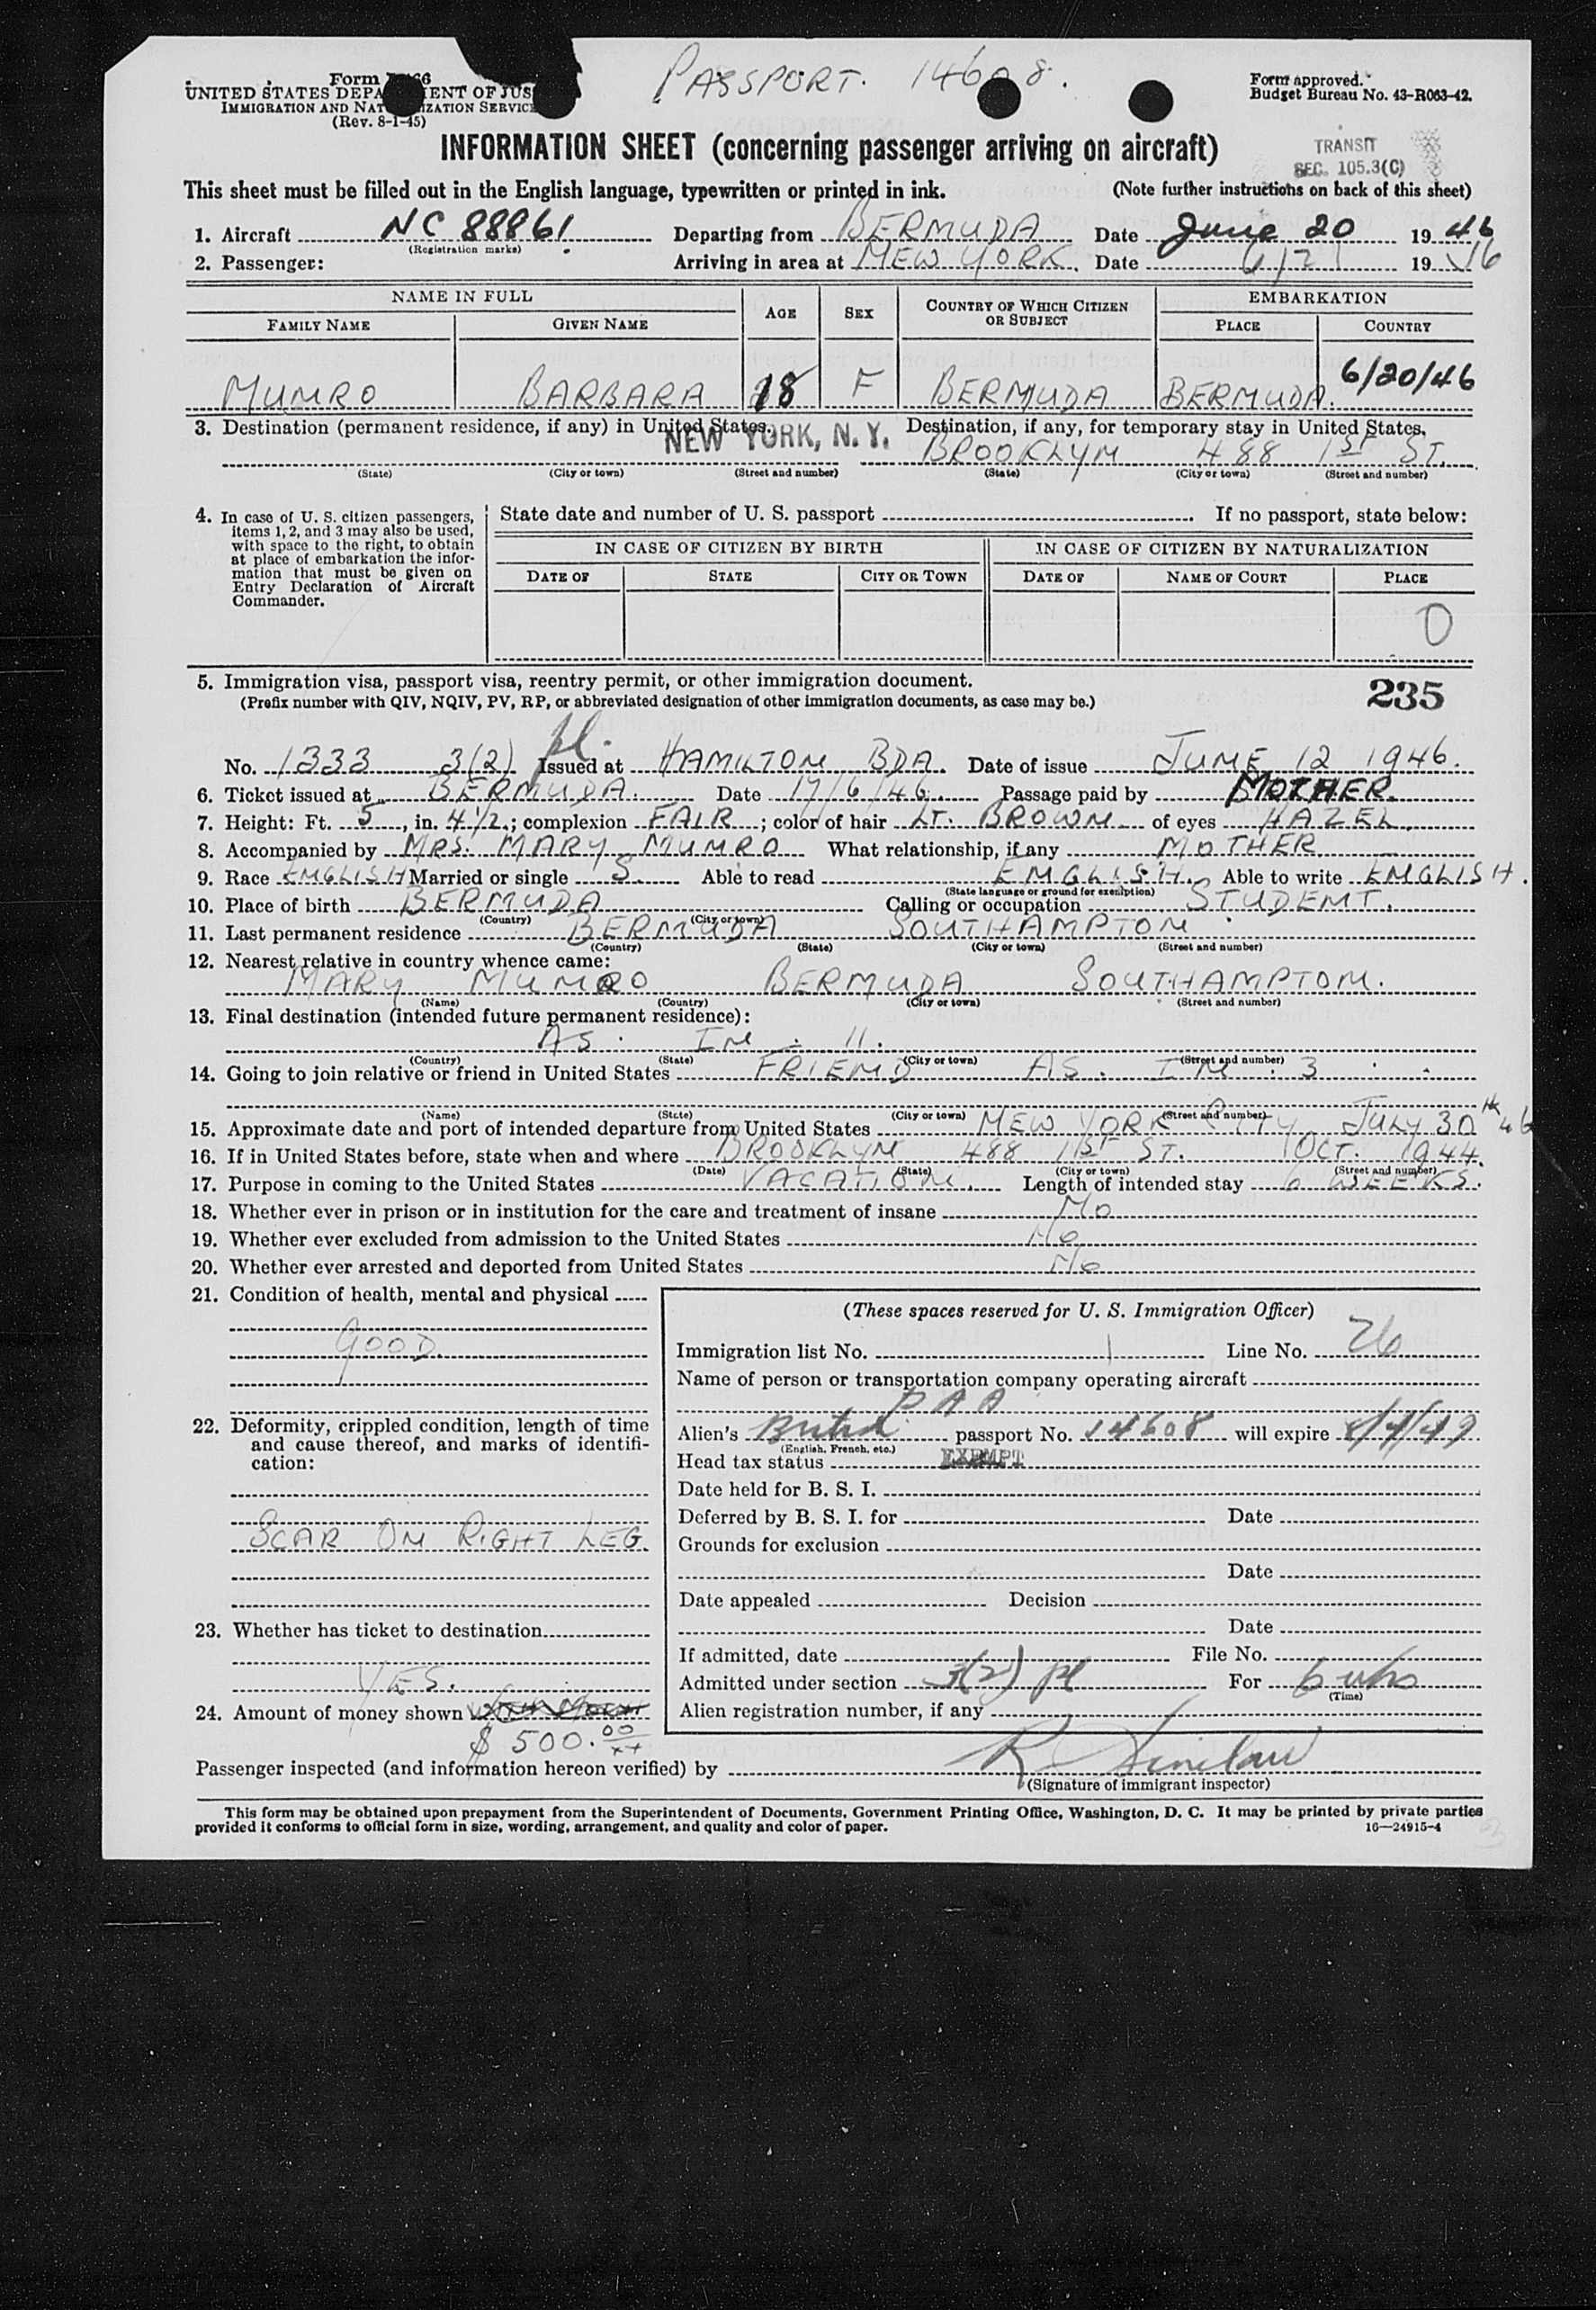 PASSPORT. 14608.
Form 66
UNITED STATES DEPA ENT OF JUS
IMMIGRATION AND NAT IZATION SERVICE
(Rev. 8-1-45)
Form approved.
Budget Bureau No. 43-R063-42.
INFORMATION SHEET (concerning passenger arriving on aircraft)
TRANSIT
SEC. 105.3(C)
This sheet must be filled out in the English language, typewritten or printed in ink. (Note further instructions on back of this sheet)
1. Aircraft NC 88861 Departing from BERMUDA Date June 20 1946
(Registration marks)
2. Passenger: Arriving in area at NEW YORK. Date 6/21 19
NAME IN FULL AGE SEX COUNTRY OF WHICH CITIZEN OR SUBJECT EMBARKATION
FAMILY NAME GIVEN NAME PLACE COUNTRY
MUNRO BARBARA 18 F BERMUDA BERMUDA. 6/20/46
3. Destination (permanent residence, if any) in United States. Destination, if any, for temporary stay in United States.
NEW YORK, N. Y. BROOKLYN 488 1ST ST.
(State) (City or town) (Street and number) (State) (City or town) (Street and number)
4. In case of U. S. citizen passengers, items 1, 2, and 3 may also be used, with space to the right, to obtain at place of embarkation the information that must be given on Entry Declaration of Aircraft Commander.
State date and number of U. S. passport . If no passport, state below:
IN CASE OF CITIZEN BY BIRTH IN CASE OF CITIZEN BY NATURALIZATION
DATE OF STATE CITY OR TOWN DATE OF NAME OF COURT PLACE
0
5. Immigration visa, passport visa, reentry permit, or other immigration document.
(Prefix number with QIV, NQIV, PV, RP, or abbreviated designation of other immigration documents, as case may be.)
235
pl.
No. 1333 3(2) Issued at HAMILTON BDA. Date of issue JUNE 12 1946.
6. Ticket issued at BERMUDA. Date 17/6/46. Passage paid by MOTHER.
7. Height: Ft. 5, in. 4 1/2; complexion FAIR; color of hair LT. BROWN of eyes HAZEL.
8. Accompanied by MRS. MARY MUNRO What relationship, if any MOTHER
9. Race ENGLISH Married or single S. Able to read ENGLISH. Able to write ENGLISH.
(State language or ground for exemption)
10. Place of birth BERMUDA Calling or occupation STUDENT.
(Country) (City or town)
11. Last permanent residence BERMUDA SOUTHAMPTON
(Country) (State) (City or town) (Street and number)
12. Nearest relative in country whence came:
MARY MUNRO BERMUDA SOUTHAMPTON.
(Name) (Country) (City or town) (Street and number)
13. Final destination (intended future permanent residence):
AS. IN. 11.
(Country) (State) (City or town) (Street and number)
14. Going to join relative or friend in United States FRIEND AS. IN. 3
(Name) (State) (City or town) (Street and number)
15. Approximate date and port of intended departure from United States NEW YORK CITY JULY 30th 46
16. If in United States before, state when and where BROOKLYN 488 1ST ST. OCT. 1944.
(Date) (State) (City or town) (Street and number)
17. Purpose in coming to the United States VACATION. Length of intended stay 6 WEEKS.
18. Whether ever in prison or in institution for the care and treatment of insane No
19. Whether ever excluded from admission to the United States No
20. Whether ever arrested and deported from United States No
21. Condition of health, mental and physical
GOOD.
22. Deformity, crippled condition, length of time and cause thereof, and marks of identification:
SCAR ON RIGHT LEG.
23. Whether has ticket to destination
YES.
24. Amount of money shown
$ 500.00
(These spaces reserved for U. S. Immigration Officer)
Immigration list No. 1 Line No. 26
Name of person or transportation company operating aircraft
PAA
Alien's British passport No. 14608 will expire
(English, French, etc.)
Head tax status EXEMPT
Date held for B. S. I.
Deferred by B. S. I. for Date
Grounds for exclusion
Date
Date appealed Decision
Date
If admitted, date File No.
Admitted under section 3(2) pl For 6 wks
(Time)
Alien registration number, if any
Passenger inspected (and information hereon verified) by R Sinclair
(Signature of immigrant inspector)
This form may be obtained upon prepayment from the Superintendent of Documents, Government Printing Office, Washington, D. C. It may be printed by private parties
provided it conforms to official form in size, wording, arrangement, and quality and color of paper. 16—24915-4